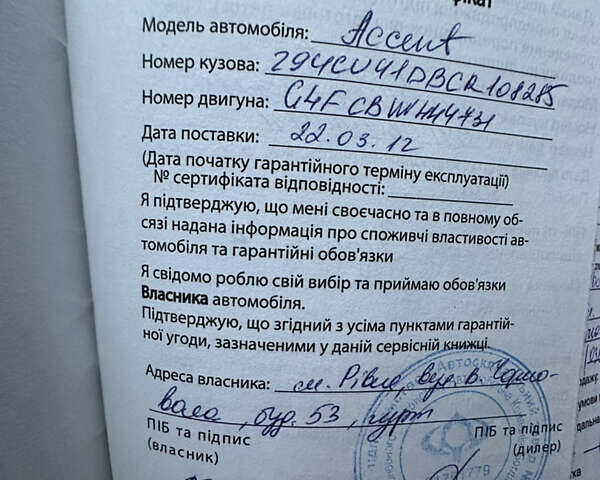 Модель автомобіля: Accent
Номер кузова: Z94CU41DBCR108285
Номер двигуна: G4FCBW444731
Дата поставки: 22.03.12
(Дата початку гарантійного терміну експлуатації)
№ сертифіката відповідності:
Я підтверджую, що мені своєчасно та в повному об-
сязі надана інформація про споживчі властивості ав-
томобіля та гарантійні обов'язки
Я свідомо роблю свій вибір та приймаю обов'язки
Власника автомобіля.
Підтверджую, що згідний з усіма пунктами гарантій-
ної угоди, зазначеними у даній сервісній книжці.
Адреса власника: м. Рівне, вул. В. Чорно-
вола, буд. 53, гурт
ПІБ та підпис
(власник)
ПІБ та підпис
(дилер)